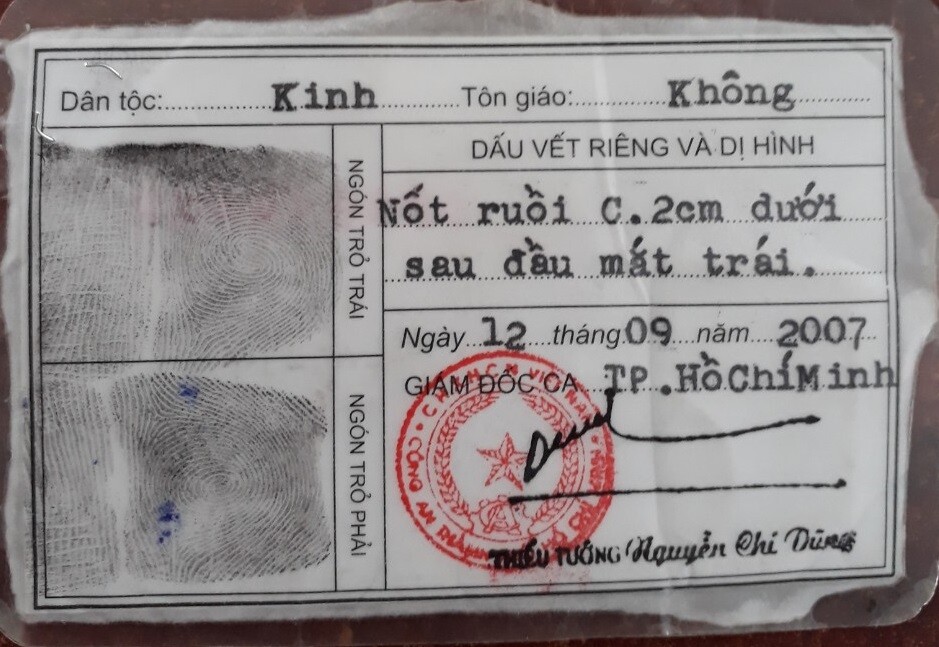 Dân tộc: Kinh Tôn giáo: Không
DẤU VẾT RIÊNG VÀ DỊ HÌNH
NGÓN TRỎ TRÁI
Nốt ruồi C.2cm dưới
sau đầu mắt trái.
Ngày 12 tháng 09 năm 2007
GIÁM ĐỐC CA TP.HồChíMinh
NGÓN TRỎ PHẢI
CÔNG AN
THIẾU TƯỚNG Nguyễn Chí Dũng